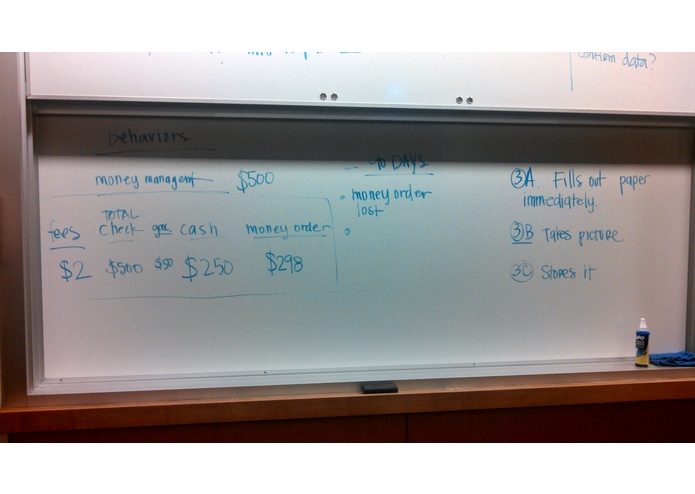 confirm data?
behaviors
money management $500
TOTAL
fees check gas cash money order
$2 $500 $50 $250 $298
40 DAYS
money order
lost
3A. Fills out paper
immediately.
3B Takes picture
3C Stores it